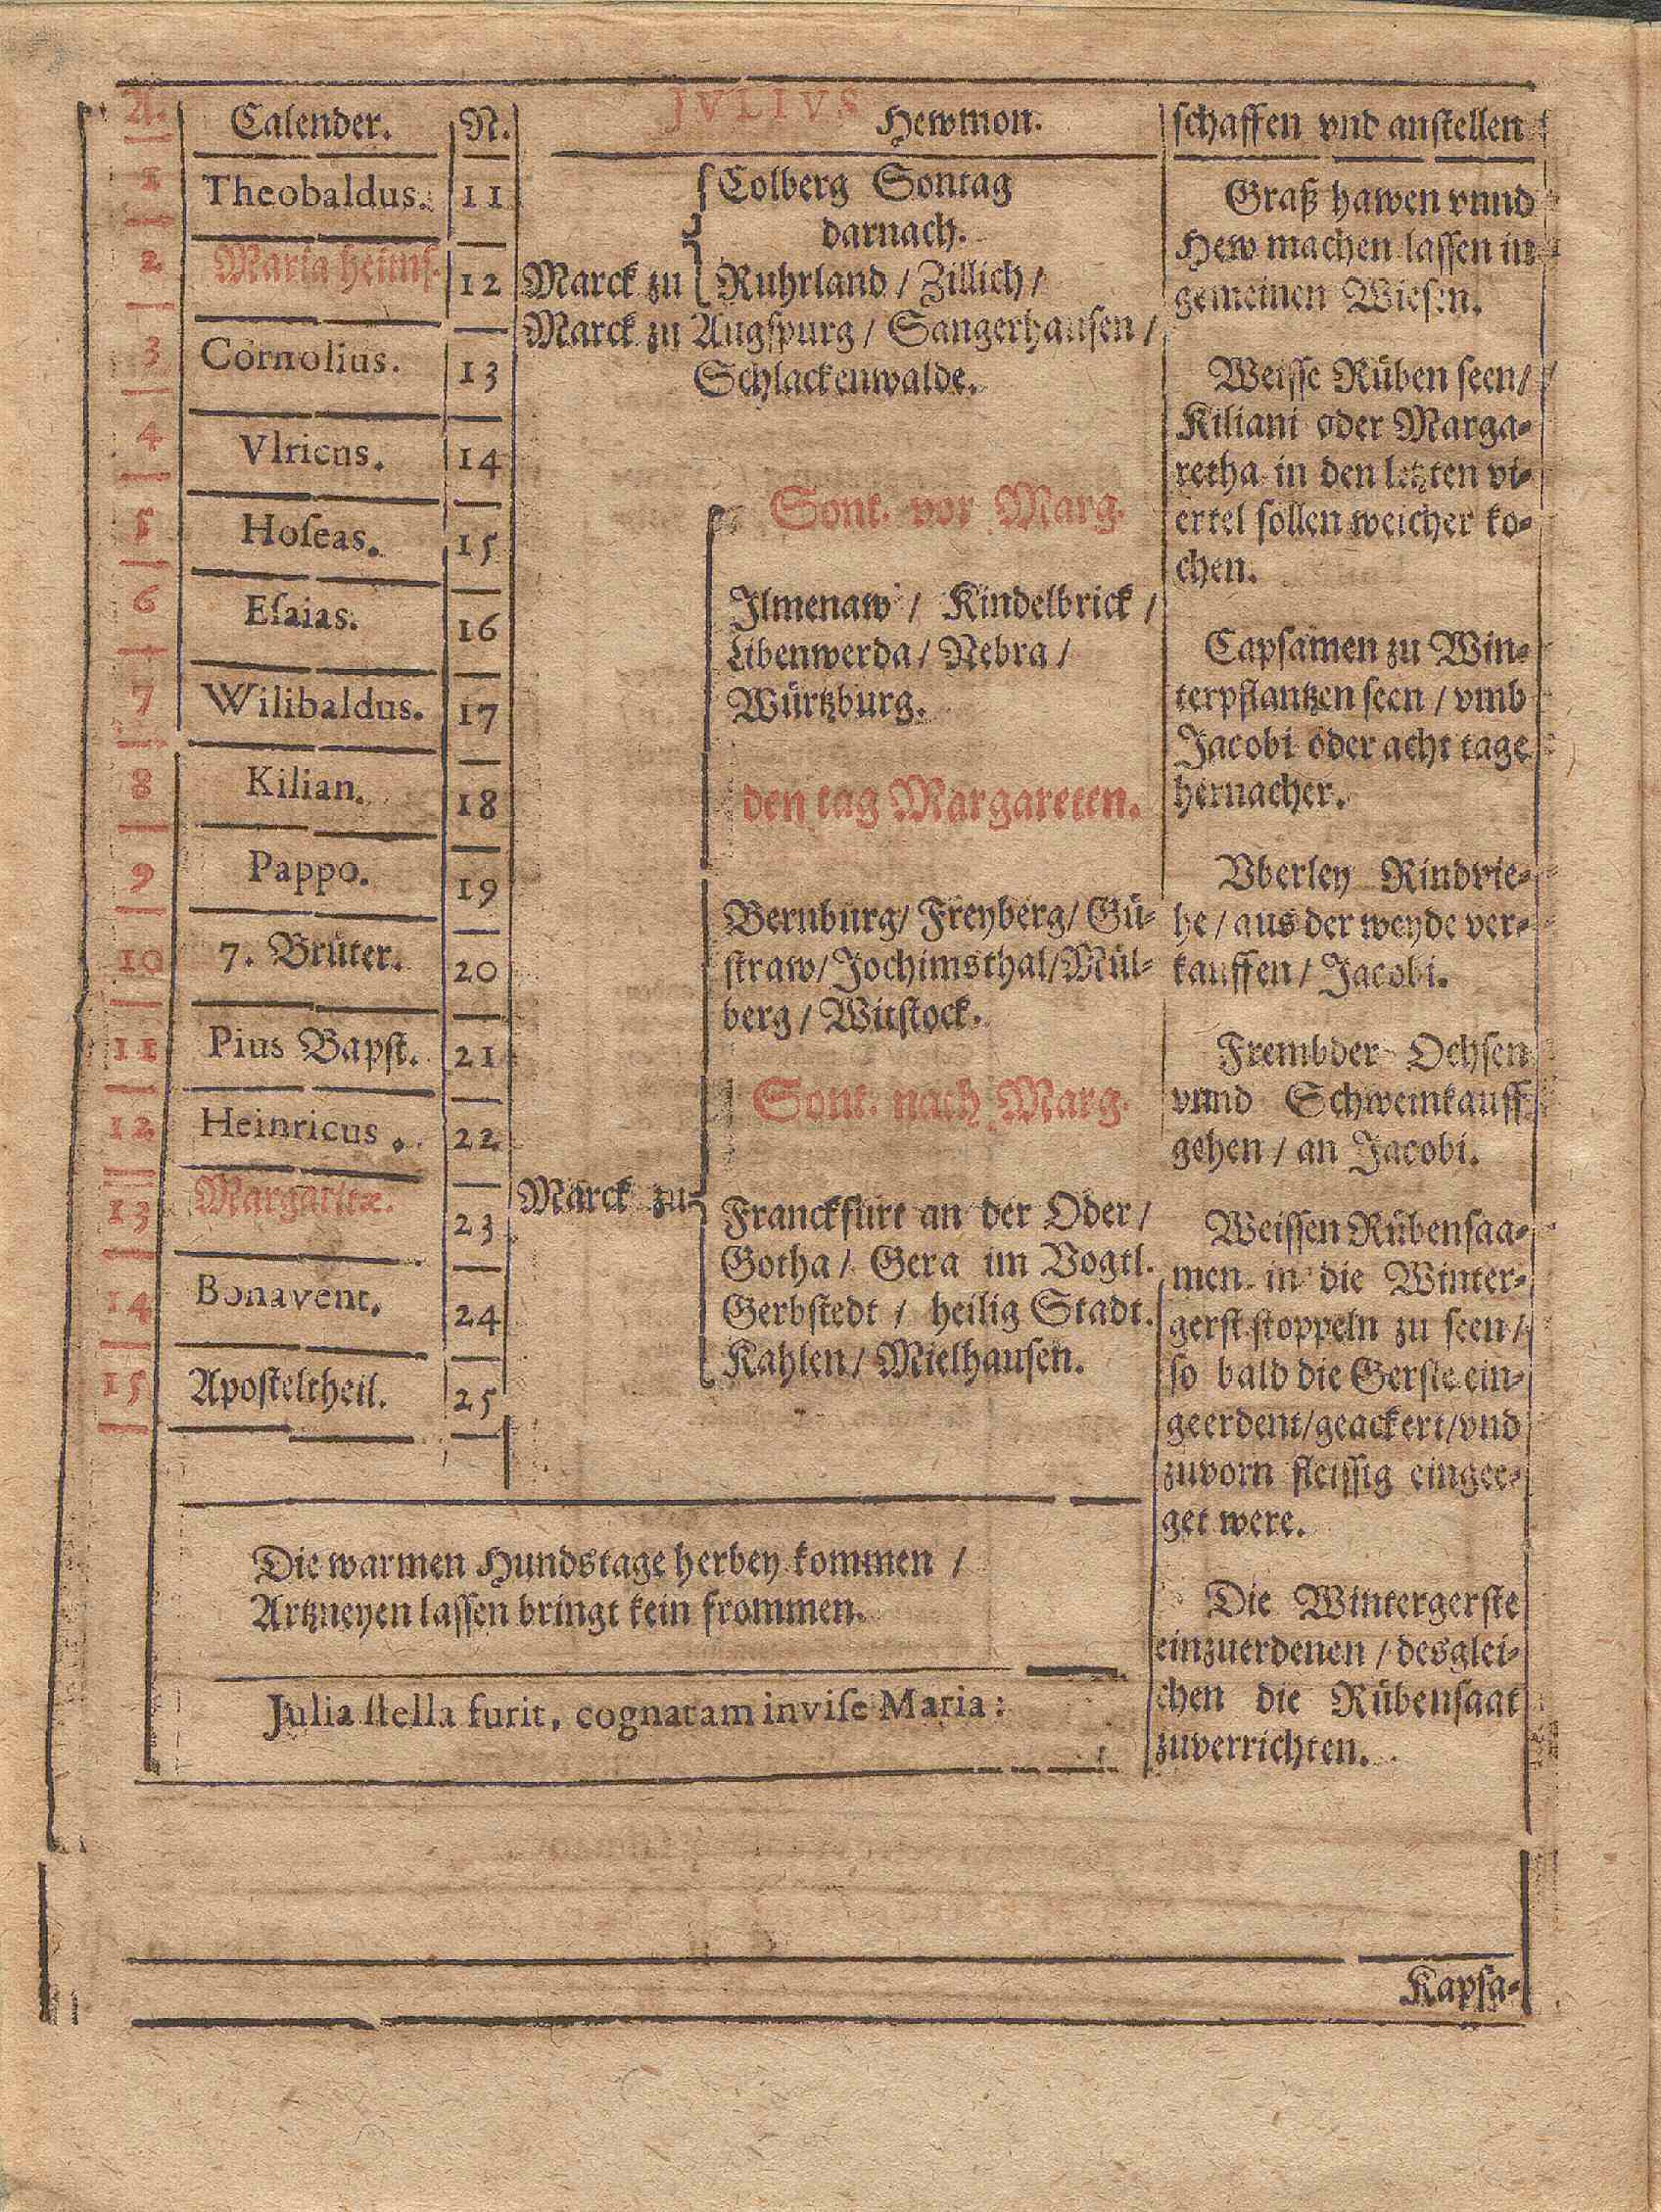 A. Calender. N. JVLIVS Hewmon. schaffen vnd anstellen
1 Theobaldus. 11
2 Maria heims. 12
3 Cornolius. 13
4 Vlricus. 14
5 Hoſeas. 15
6 Eſaias. 16
7 Wilibaldus. 17
8 Kilian. 18
9 Pappo. 19
10 7. Brüter. 20
11 Pius Bapst. 21
12 Heinricus. 22
13 Margaritæ. 23
14 Bonavent. 24
15 Aposteltheil. 25
Colberg Sontag
darnach.
Marck zu Ruhrland / Zillich /
Marck zu Augspurg / Sangerhausen /
Schlackenwalde.
Sont. vor Marg.
Ilmenaw / Kindelbrick /
Libenwerda / Nebra /
Würtzburg.
den tag Margareten.
Bernburg / Freyberg / Gü-
straw / Jochimsthal / Mül-
berg / Witstock.
Sont. nach Marg.
Marck zu
Franckfurt an der Oder /
Gotha / Gera im Vogtl.
Gerbstedt / heilig Stadt.
Kahlen / Mielhausen.
Graß hawen vnnd
Hew machen lassen in
gemeinen Wiesen.
Weisse Rüben seen /
Kiliani oder Marga-
retha in den letzten vi-
ertel sollen weicher ko-
chen.
Capsamen zu Win-
terpflantzen seen / vmb
Jacobi oder acht tage
hernacher.
Vberley Rindvie-
he / aus der weyde ver-
kauffen / Jacobi.
Frembder Ochsen
vnnd Schweinkauff
gehen / an Jacobi.
Weissen Rübensaa-
men in die Winter-
gerst stoppeln zu seen /
so bald die Gerste ein-
geerdent / geackert / vnd
zuvorn fleissig einger-
get were.
Die Wintergerste
einzuerdenen / desglei-
chen die Rübensaat
zuverrichten.
Die warmen Hundstage herbey kommen /
Artzneyen lassen bringt kein frommen.
Julia ſtella furit, cognatam inviſe Maria:
Kapsa-